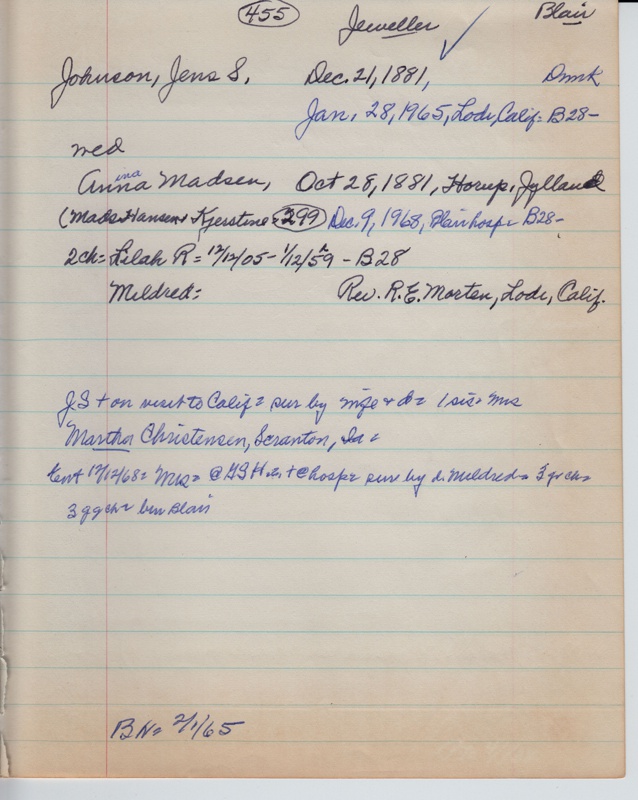 455 Jeweller Blair
Johnson, Jens S. Dec. 21, 1881, Dmrk
Jan. 28, 1965, Lodi, Calif= B28-
wed
ina
Anna Madsen, Oct 28, 1881, Horup, Jylland
(Mads Hansen + Kjerstine = 299) Dec. 9, 1968, Blair hosp= B28-
2ch= Lilah R= 12/12/05- 1/12/59 - B28
Mildred= Rev. R.E. Morten, Lodi, Calif.
JS + on visit to Calif= sur by wife + d= 1 sis= Mrs
Martha Christensen, Scranton, Ia=
Ent 12/12/68= Mrs= @ + @ hosp= sur by d. Mildred= 3 grch=
3 ggch= bur Blair
BN= 2/1/65